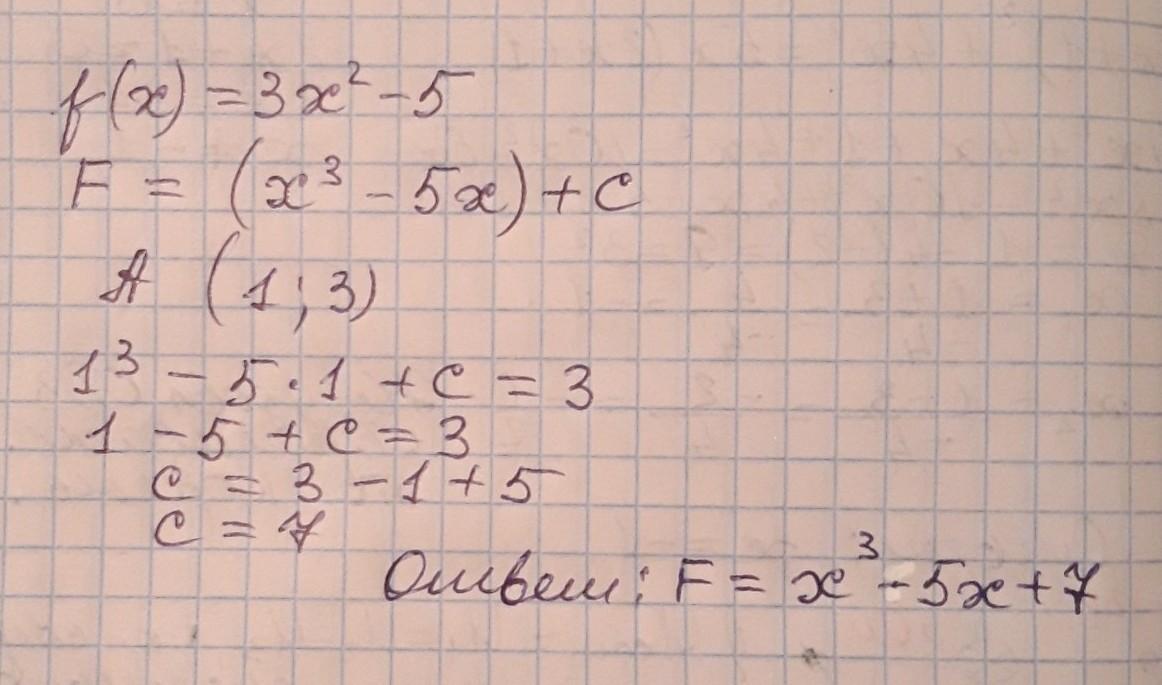 f(x) = 3x² - 5
F = (x³ - 5x) + C
A (1; 3)
1³ - 5 · 1 + C = 3
1 - 5 + C = 3
C = 3 - 1 + 5
C = 7
Ответ: F = x³ - 5x + 7